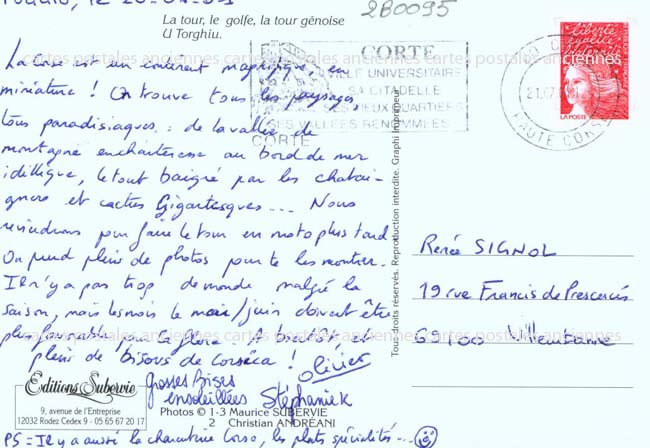 La tour, le golfe, la tour génoise
U Torghiu.
2B0095
La Corse est un continent magnifique, en
miniature ! On trouve tous les paysages,
tous paradisiaques : de la vallée de
montagne enchanteresse au bord de mer
idyllique, le tout baigné par les chatai-
gniers et cactus gigantesques... Nous
reviendrons pour faire le tour en moto plus tard
On prend plein de photos pour te les montrer.
Il n'y a pas trop de monde malgré la
saison, mais les mois de mai/juin doivent être
plus favorables pour la flore ! A bientôt et
plein de bisous de Corsica ! Olivier
Grosses Bises
ensoleillées Stéphanie
PS = Il y a aussi la charcuterie Corse, les plats, spécialités...
CORTE
VILLE UNIVERSITAIRE
SA CITADELLE
VIEUX QUARTIERS
SES VALLEES RENOMMEES
CORTE
HAUTE CORSE
Liberté
égalité
fraternité
LA POSTE
Renée SIGNOL
19 rue Francis de Pressensé
69100 Villeurbanne
Tous droits réservés. Reproduction interdite. Graphi Imprimeur
Editions Subervie
9, avenue de l'Entreprise
12032 Rodez Cedex 9 - 05 65 67 20 17
Photos © 1-3 Maurice SUBERVIE
2 Christian ANDREANI
cartes postales anciennes cartes postales anciennes cartes postales anciennes
cartes postales anciennes cartes postales anciennes cartes postales anciennes